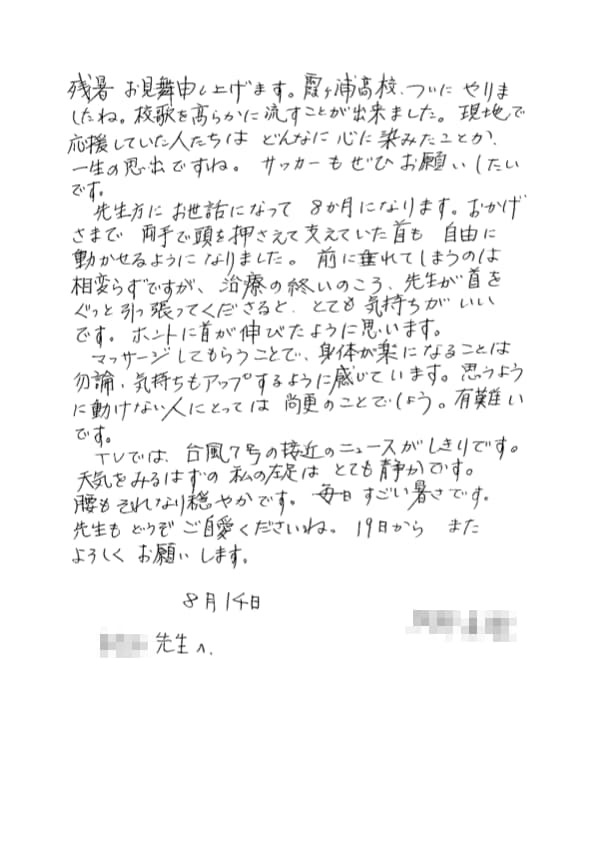 残暑 お見舞申し上げます。霞ヶ浦高校、ついに やりま
したね。校歌を高らかに流すことが出来ました。現地で
応援していた人たちは どんなに 心に染みたことか、
一生の思出ですね。 サッカーもぜひ お願いしたい
です。
先生方に お世話になって 8か月になります。おかげ
さまで 両手で頭を押さえて支えていた首も 自由に
動かせるようになりました。 前に垂れてしまうのは
相変らずですが、治療の終いのころ、先生が首を
ぐっと引っ張ってくださると、とても気持ちがいい
です。ホントに首が伸びたように思います。
マッサージしてもらうことで、身体が楽になることは
勿論、気持ちもアップするように感じています。思うよう
に動けない人にとっては 尚更のことでしょう。有難い
です。
TVでは、台風7号の接近のニュースがしきりです。
天気をみるはずの 私の左足は とても静かです。
腰もそれなり穏やかです。 毎日 すごい暑さです。
先生も どうぞ ご自愛くださいね。 19日から また
よろしく お願いします。
8月14日
先生へ.